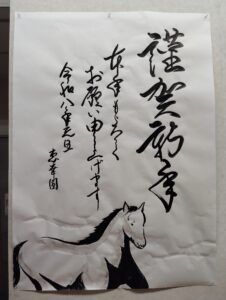 謹賀新年
本年もよろしく
お願い申し上げます
令和八年元旦